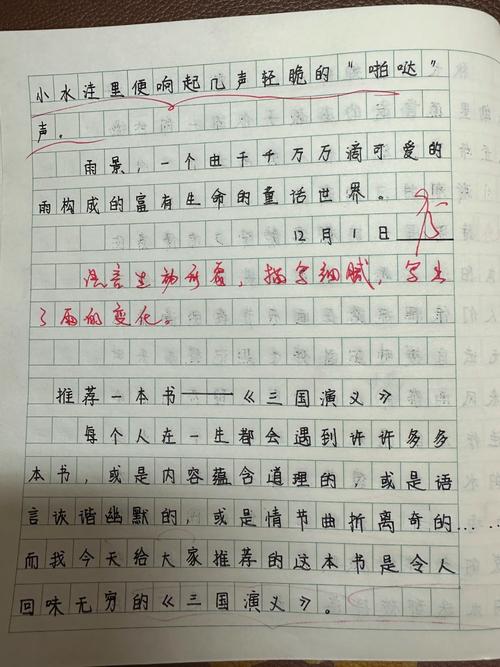 小水洼里便响起几声轻脆的“啪哒”
声。
雨景，一个由千千万万滴可爱的
雨构成的富有生命的童话世界。
12月1日
语言生动形象，描写细腻，写出
了雨的变化。
推荐一本书——《三国演义》
每个人在一生都会遇到许许多多
本书，或是内容蕴含道理的，或是语
言诙谐幽默的，或是情节曲折离奇的……
而我今天给大家推荐的这本书是令人
回味无穷的《三国演义》。